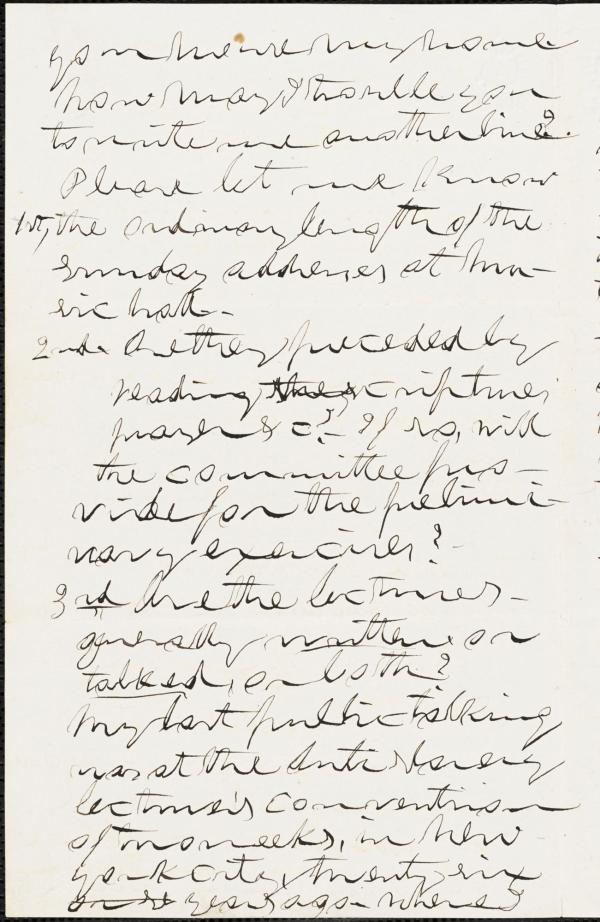 you where my home
how may I trouble you
to write me another line?
Please let me know
1st, the ordinary length of the
Sunday addresses at Mu-
sic hall-
2nd. Are they preceded by
reading the scriptures
prayer & c? - If so, will
the committee pro-
vide for the prelimi-
nary exercises?
3rd Are the lectures-
generally written or
talked, or both?
My last public talking
was at the Anti Slavery
lecturers convention
of two weeks, in New
York City, twenty six
years ago - where I